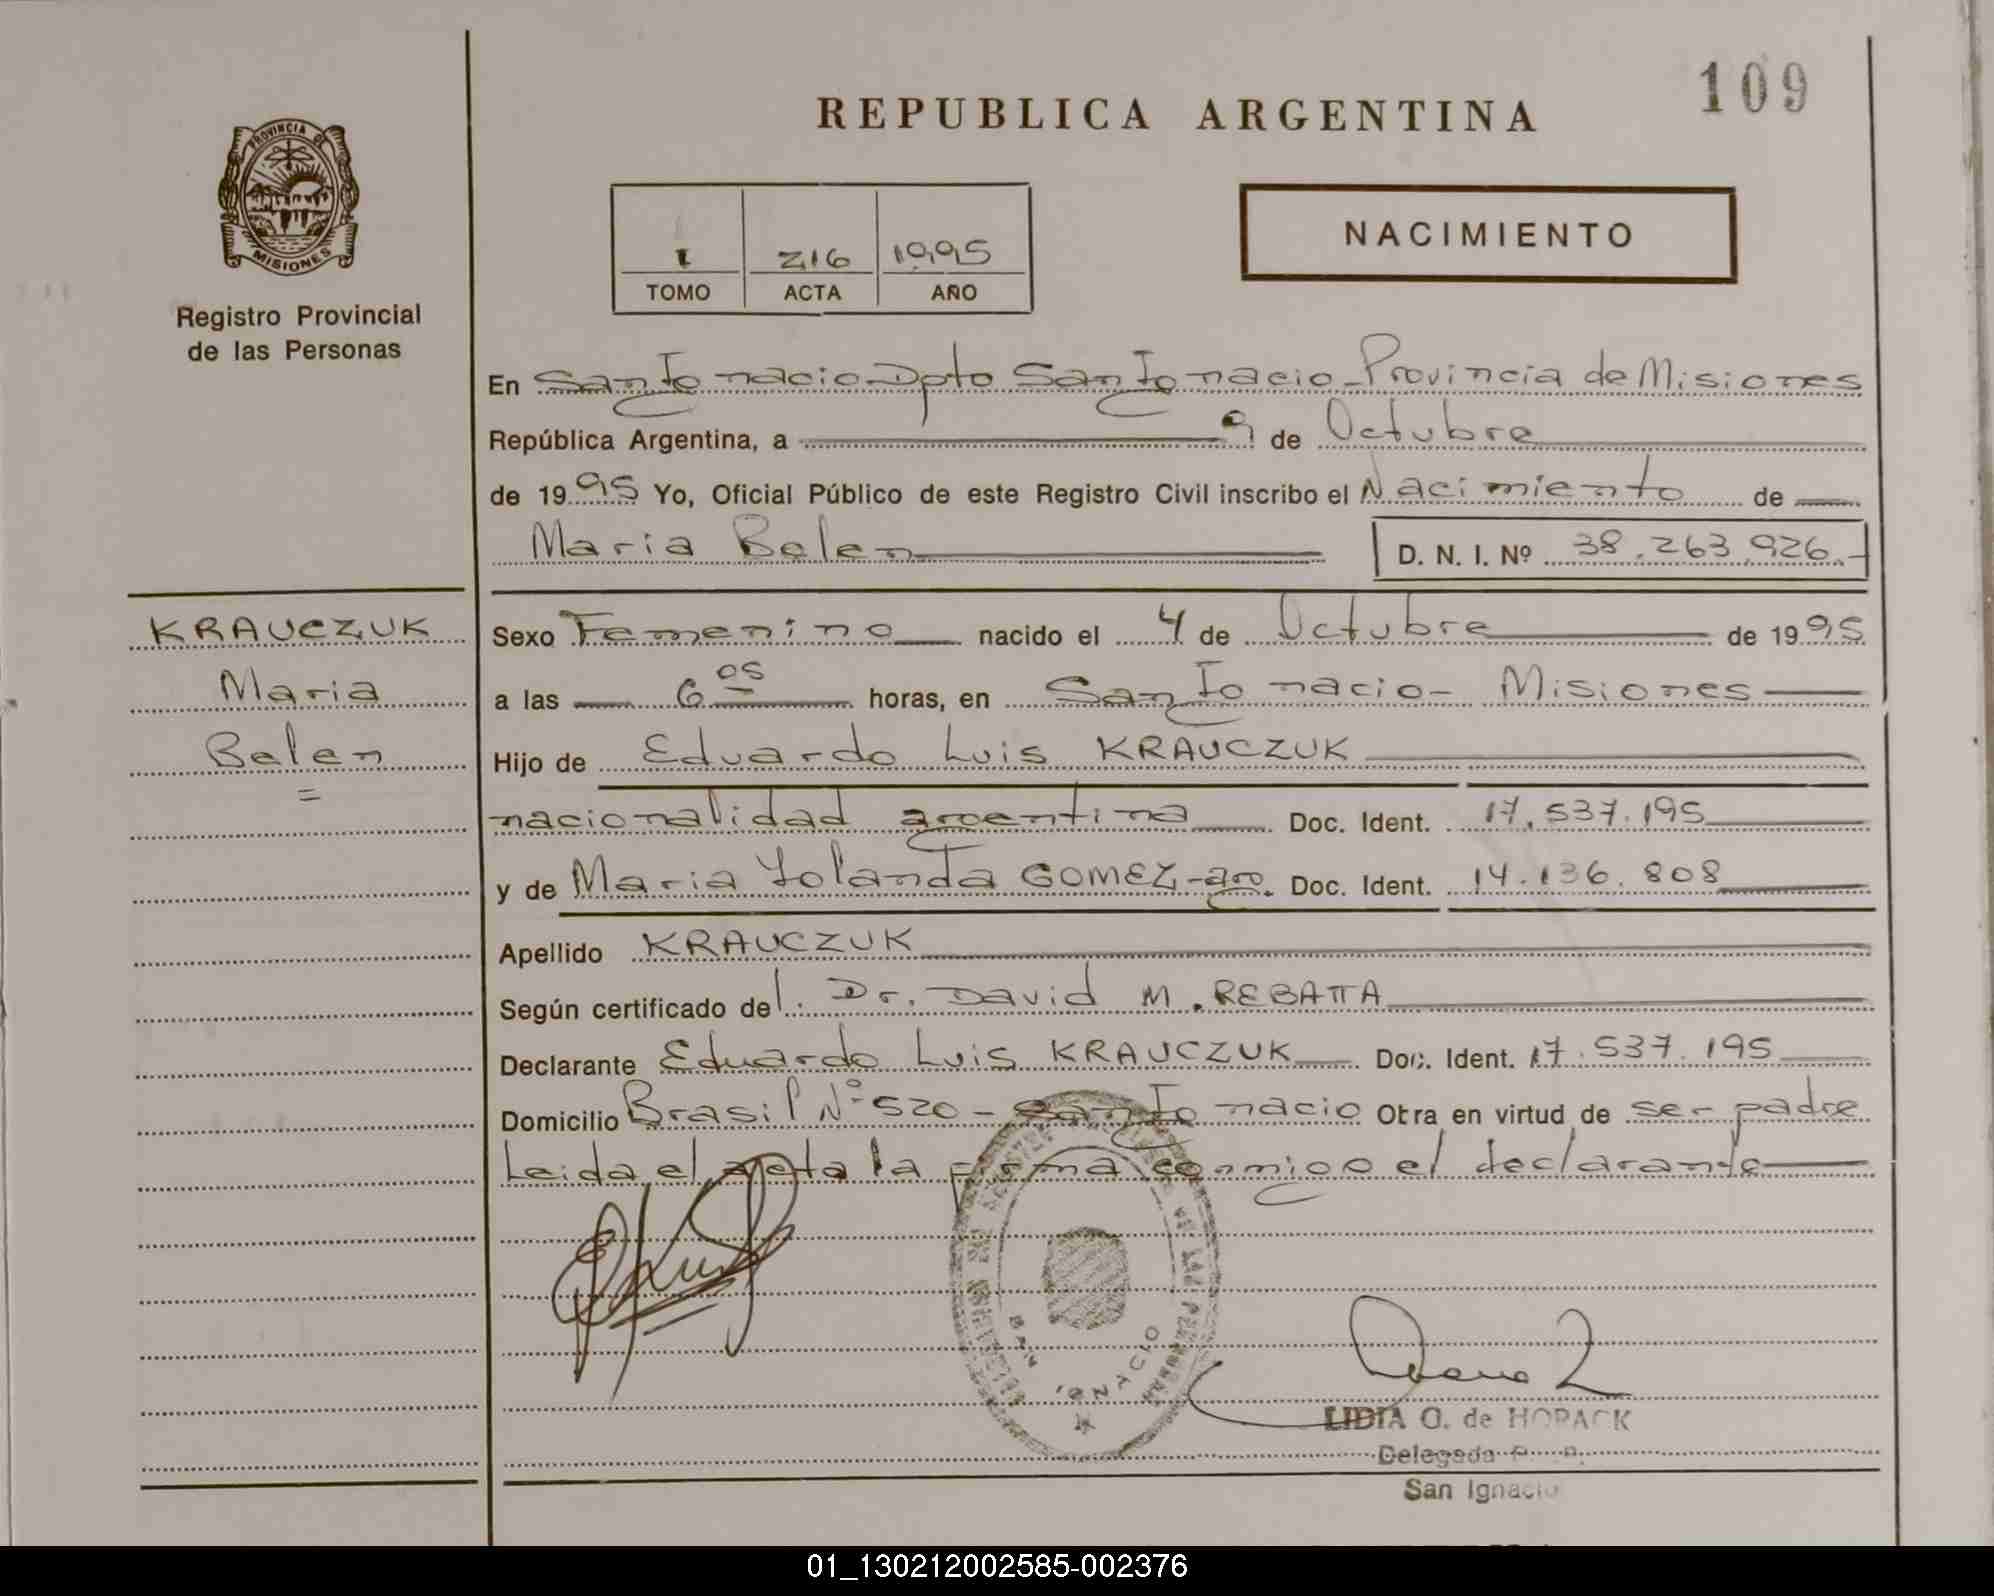 109
REPUBLICA ARGENTINA
PROVINCIA DE
MISIONES
Registro Provincial
de las Personas
NACIMIENTO
I 216 1995
TOMO ACTA AÑO
En San Ignacio Dpto San Ignacio - Provincia de Misiones
República Argentina, a 9 de Octubre
de 1995 Yo, Oficial Público de este Registro Civil inscribo el Nacimiento de
Maria Belen D. N. I. Nº 38.263.926.-
KRAUCZUK
Maria
Belen
Sexo Femenino nacido el 4 de Octubre de 1995
a las 6 05 horas, en San Ignacio - Misiones
Hijo de Eduardo Luis KRAUCZUK
nacionalidad argentina Doc. Ident. 17.537.195
y de Maria Yolanda GOMEZ - arg. Doc. Ident. 14.136.808
Apellido KRAUCZUK
Según certificado del. Dr. David M. REBATTA
Declarante Eduardo Luis KRAUCZUK Doc. Ident. 17.537.195
Domicilio Brasil Nº 520 - San Ignacio Otra en virtud de ser padre
Leida el acta la firma conmigo el declarante
SAN IGNACIO
LIDIA O. de HORACK
Delegada
San Ignacio
01_130212002585-002376